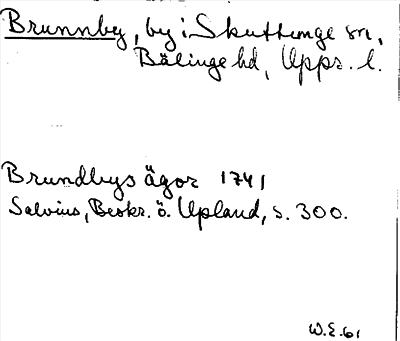 Brunnby, by i Skuttunge sn,
Bälinge hd, Upps. l.
Brundbys ägor 1741
Salvius, Beskr. ö. Upland, s. 300.
W.E. 61